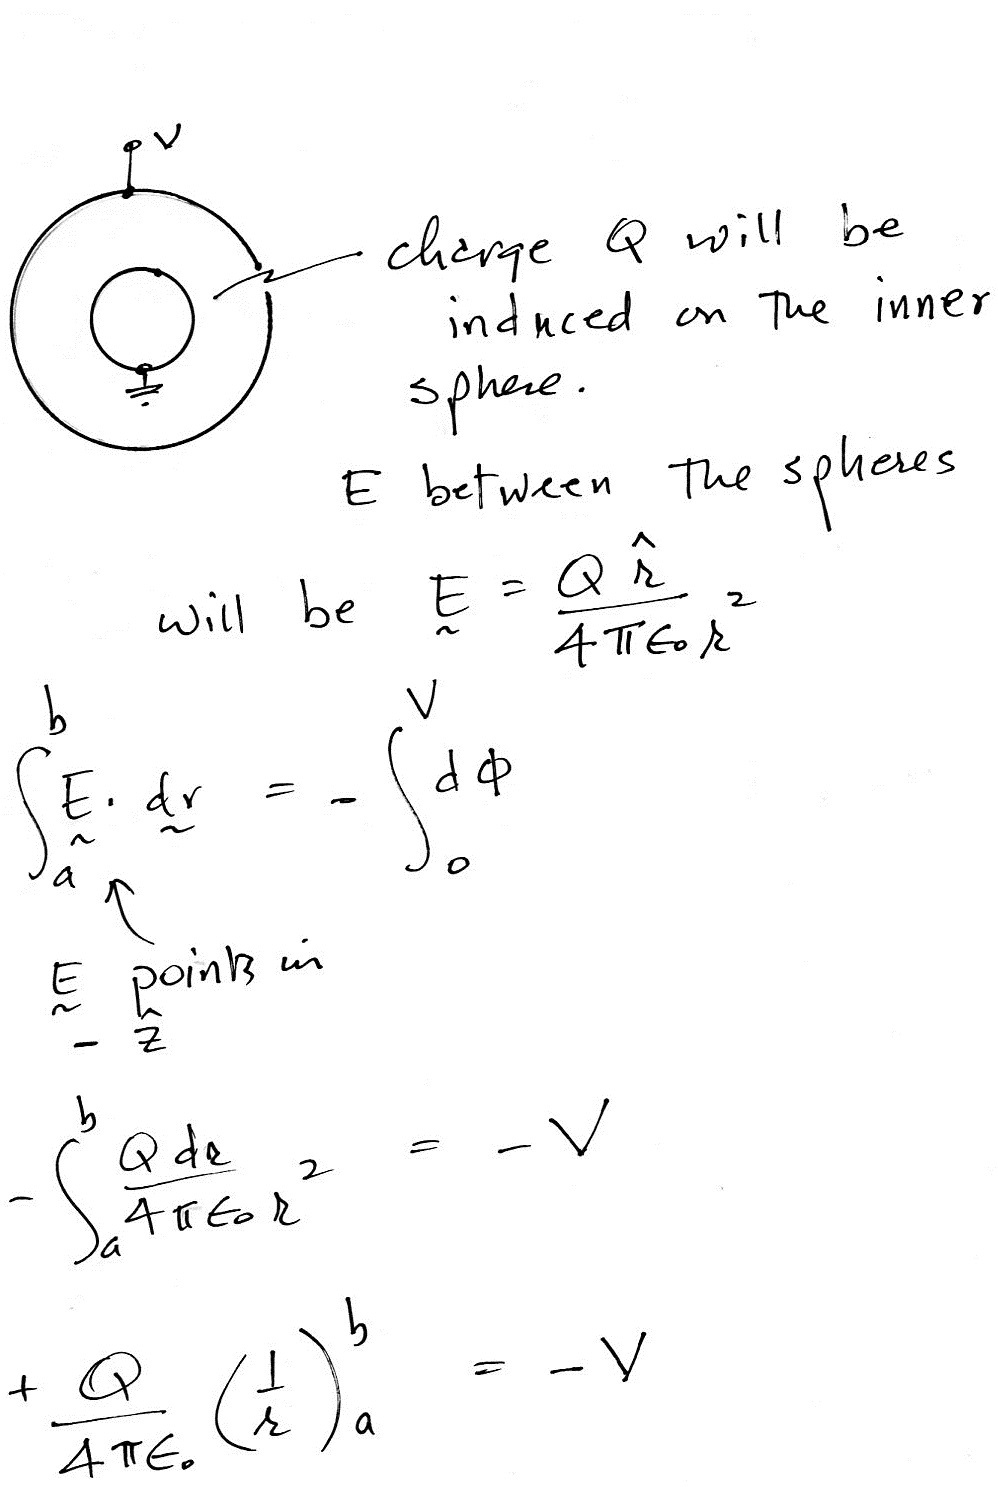 V
charge Q will be
induced on the inner
sphere.
E between the spheres
will be E = Q r̂ / 4πϵ₀r²
∫ₐᵇ E · dr = - ∫₀ⱽ dφ
E points in
- ẑ
- ∫ₐᵇ Q dr / 4πϵ₀r² = - V
+ Q / 4πϵ₀ (1/r)ₐᵇ = - V